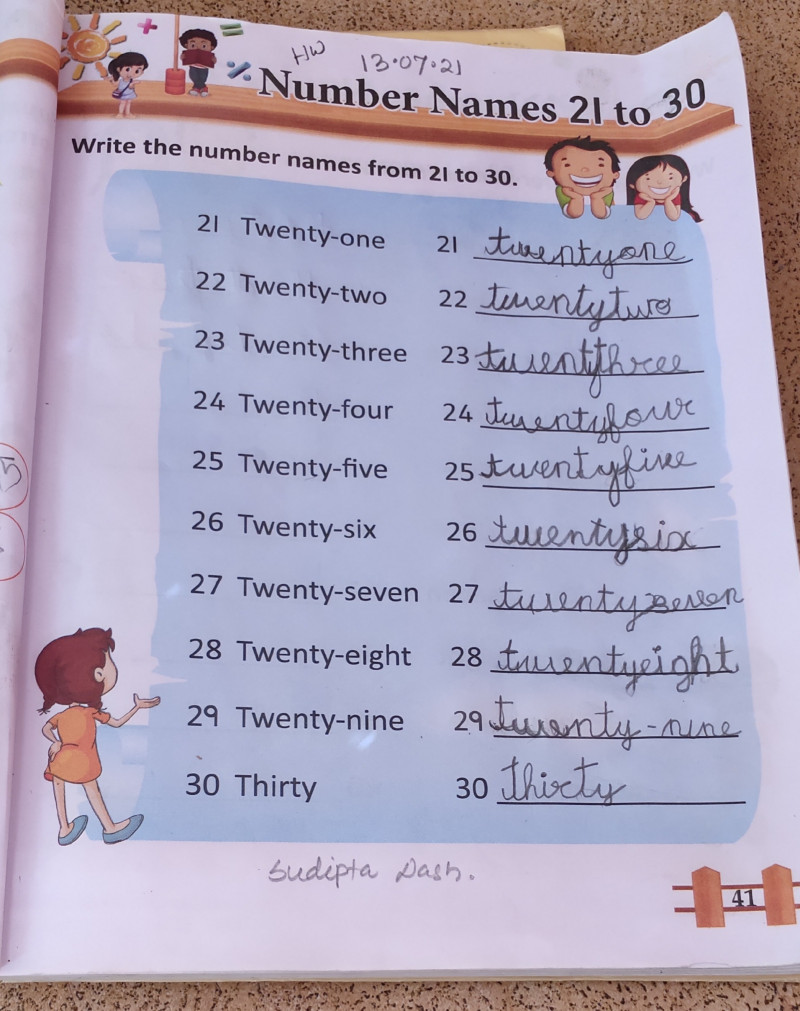 HW 13.07.21
Number Names 21 to 30
Write the number names from 21 to 30.
21 Twenty-one 21 twentyone
22 Twenty-two 22 twentytwo
23 Twenty-three 23 twentythree
24 Twenty-four 24 twentyfour
25 Twenty-five 25 twentyfive
26 Twenty-six 26 twentysix
27 Twenty-seven 27 twentyseven
28 Twenty-eight 28 twentyeight
29 Twenty-nine 29 twenty-nine
30 Thirty 30 thirty
Sudipta Dash.
41